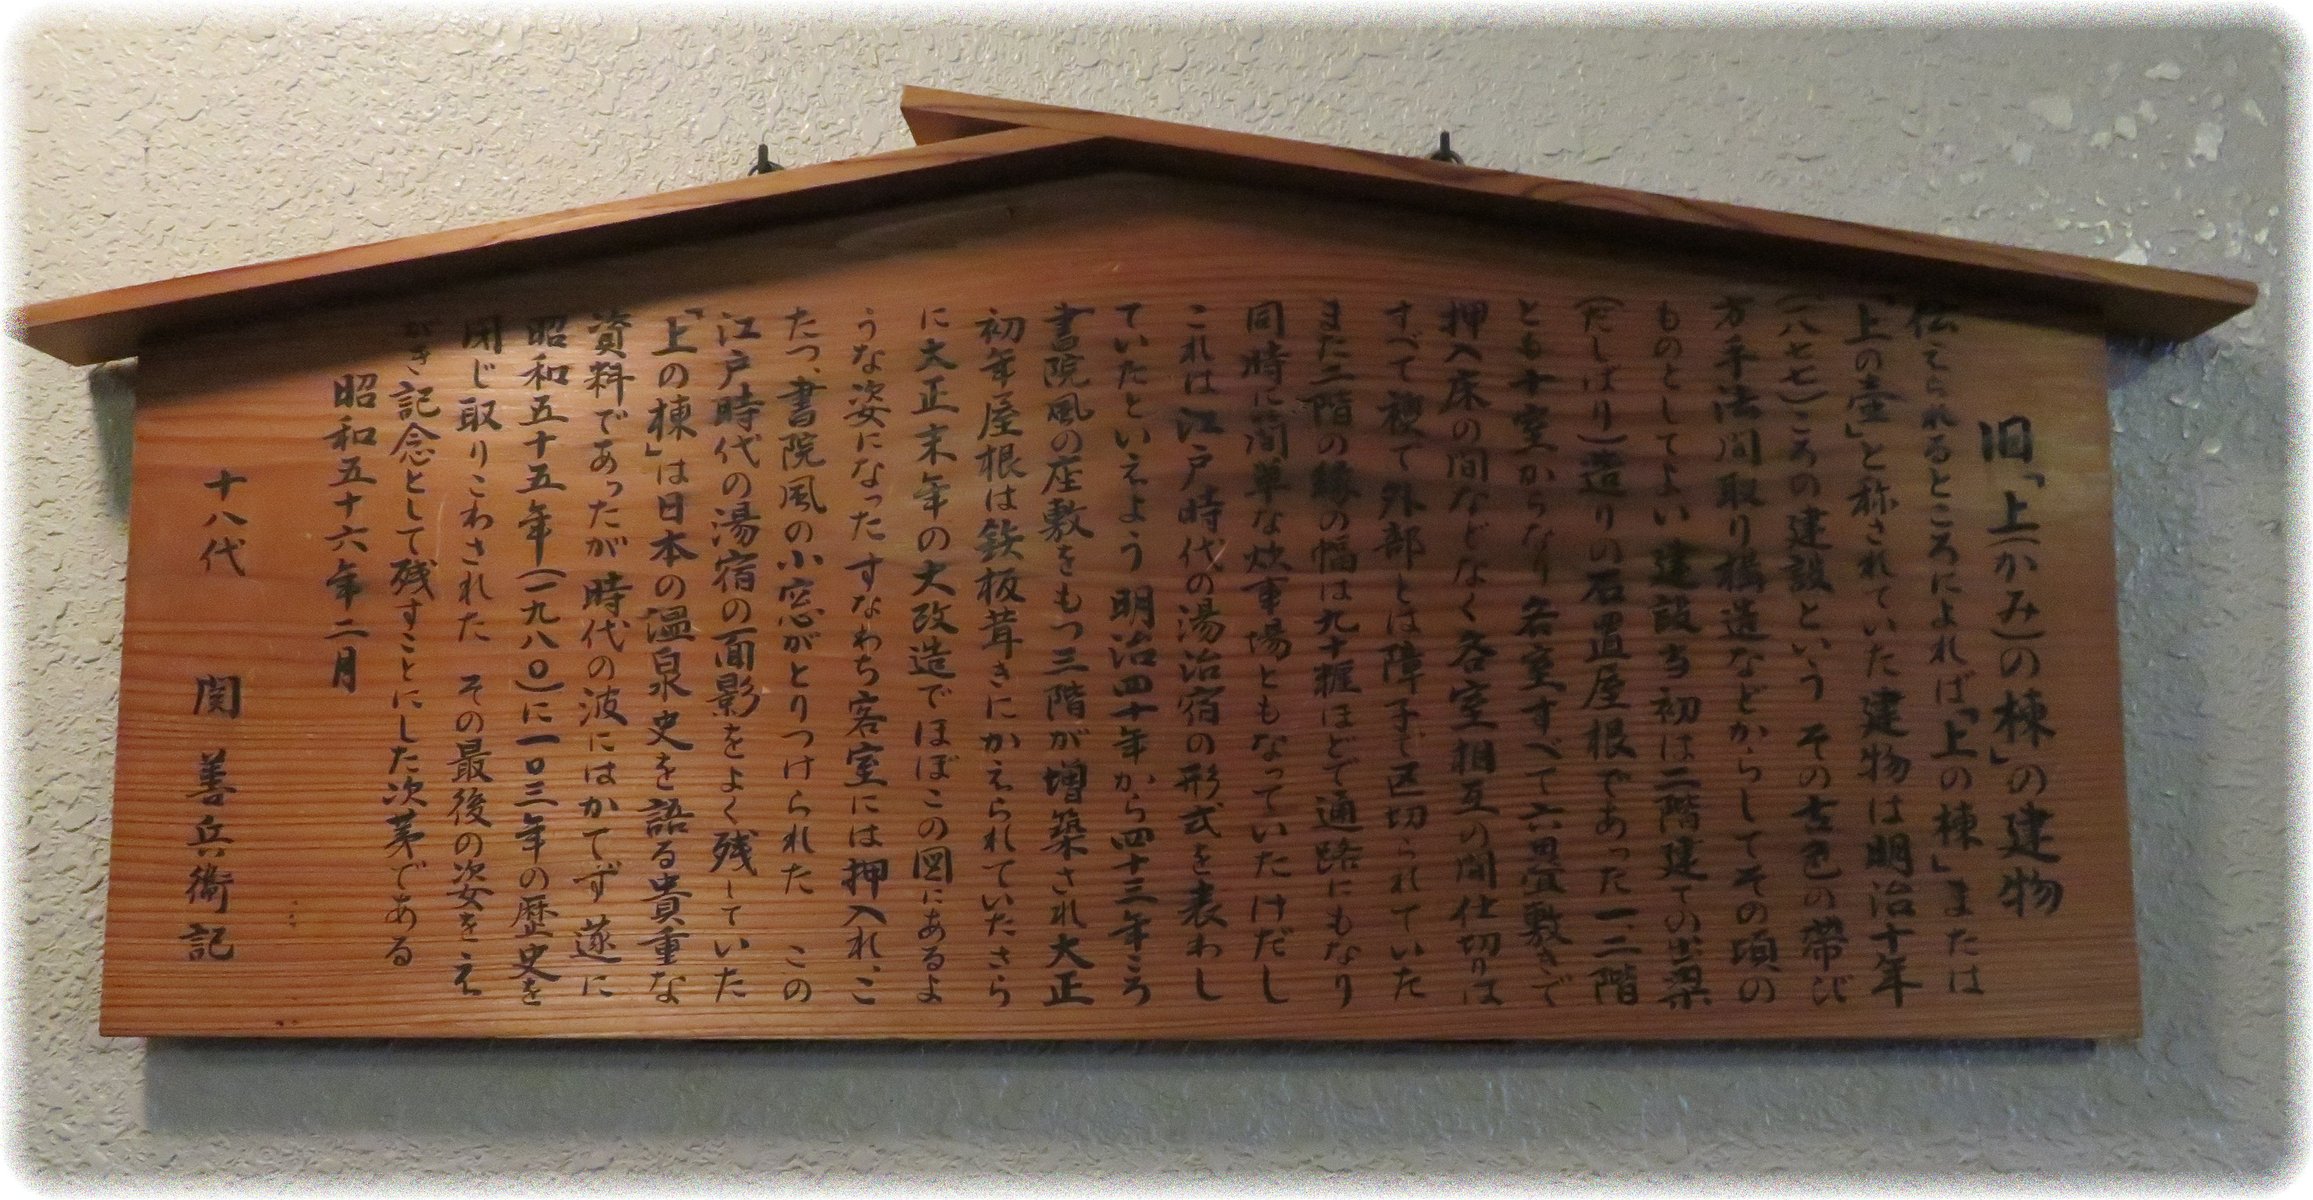 旧「上(かみ)の棟」の建物
伝えられるところによれば「上の棟」または
「上の壷」と称されていた建物は明治十年
(一八七七)ころの建設という その古色の帯び
方手法間取り構造などからしてその頃の
ものとしてよい 建設当初は二階建ての出梁
(だしばり)造りの石置屋根であった 一、二階
とも十室からなり各室すべて六畳敷きで
押入床の間などなく各室相互の間仕切りは
すべて襖で外部とは障子で区切られていた
また二階の縁の幅は九十糎ほどで通路にもなり
同時に簡単な炊事場ともなっていたけだし
これは江戸時代の湯治宿の形式を表わし
ていたといえよう 明治四十年から四十三年ころ
書院風の座敷をもつ三階が増築され大正
初年屋根は鉄板葺きにかえられていたさら
に大正末年の大改造でほぼこの図にあるよ
うな姿になった すなわち客室には押入れ、こ
たつ、書院風の小窓がとりつけられた この
江戸時代の湯宿の面影をよく残していた
「上の棟」は日本の温泉史を語る貴重な
資料であったが 時代の波にはかてず 遂に
昭和五十五年(一九八〇)に一〇三年の歴史を
閉じ取りこわされた その最後の姿をえ
がき記念として残すことにした次第である
昭和五十六年二月
十八代 関 善兵衛 記